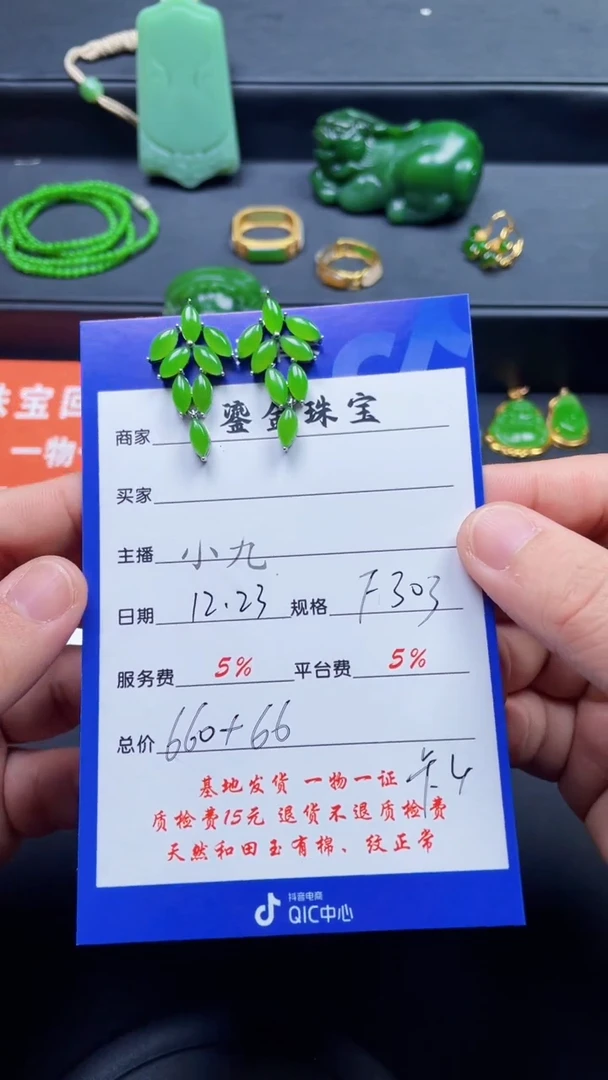 珠宝回
一物一
商家 鎏金珠宝
买家
主播 小九
日期 12.23 规格 F303
服务费 5% 平台费 5%
总价 660+66
卡4
基地发货 一物一证
质检费15元 退货不退质检费
天然和田玉有棉、纹正常
抖音电商
QIC中心